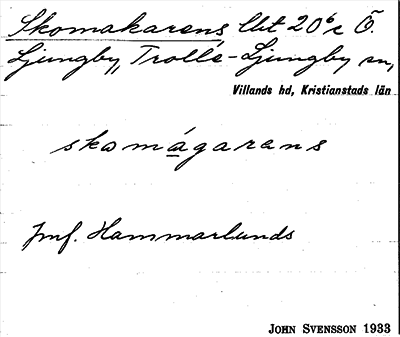 Skomakarens lht 20⁶c Ö.
Ljungby, Trolle-Ljungby sn,
Villands hd, Kristianstads län
skomágarans
Jmf. Hammarlunds
JOHN SVENSSON 1933